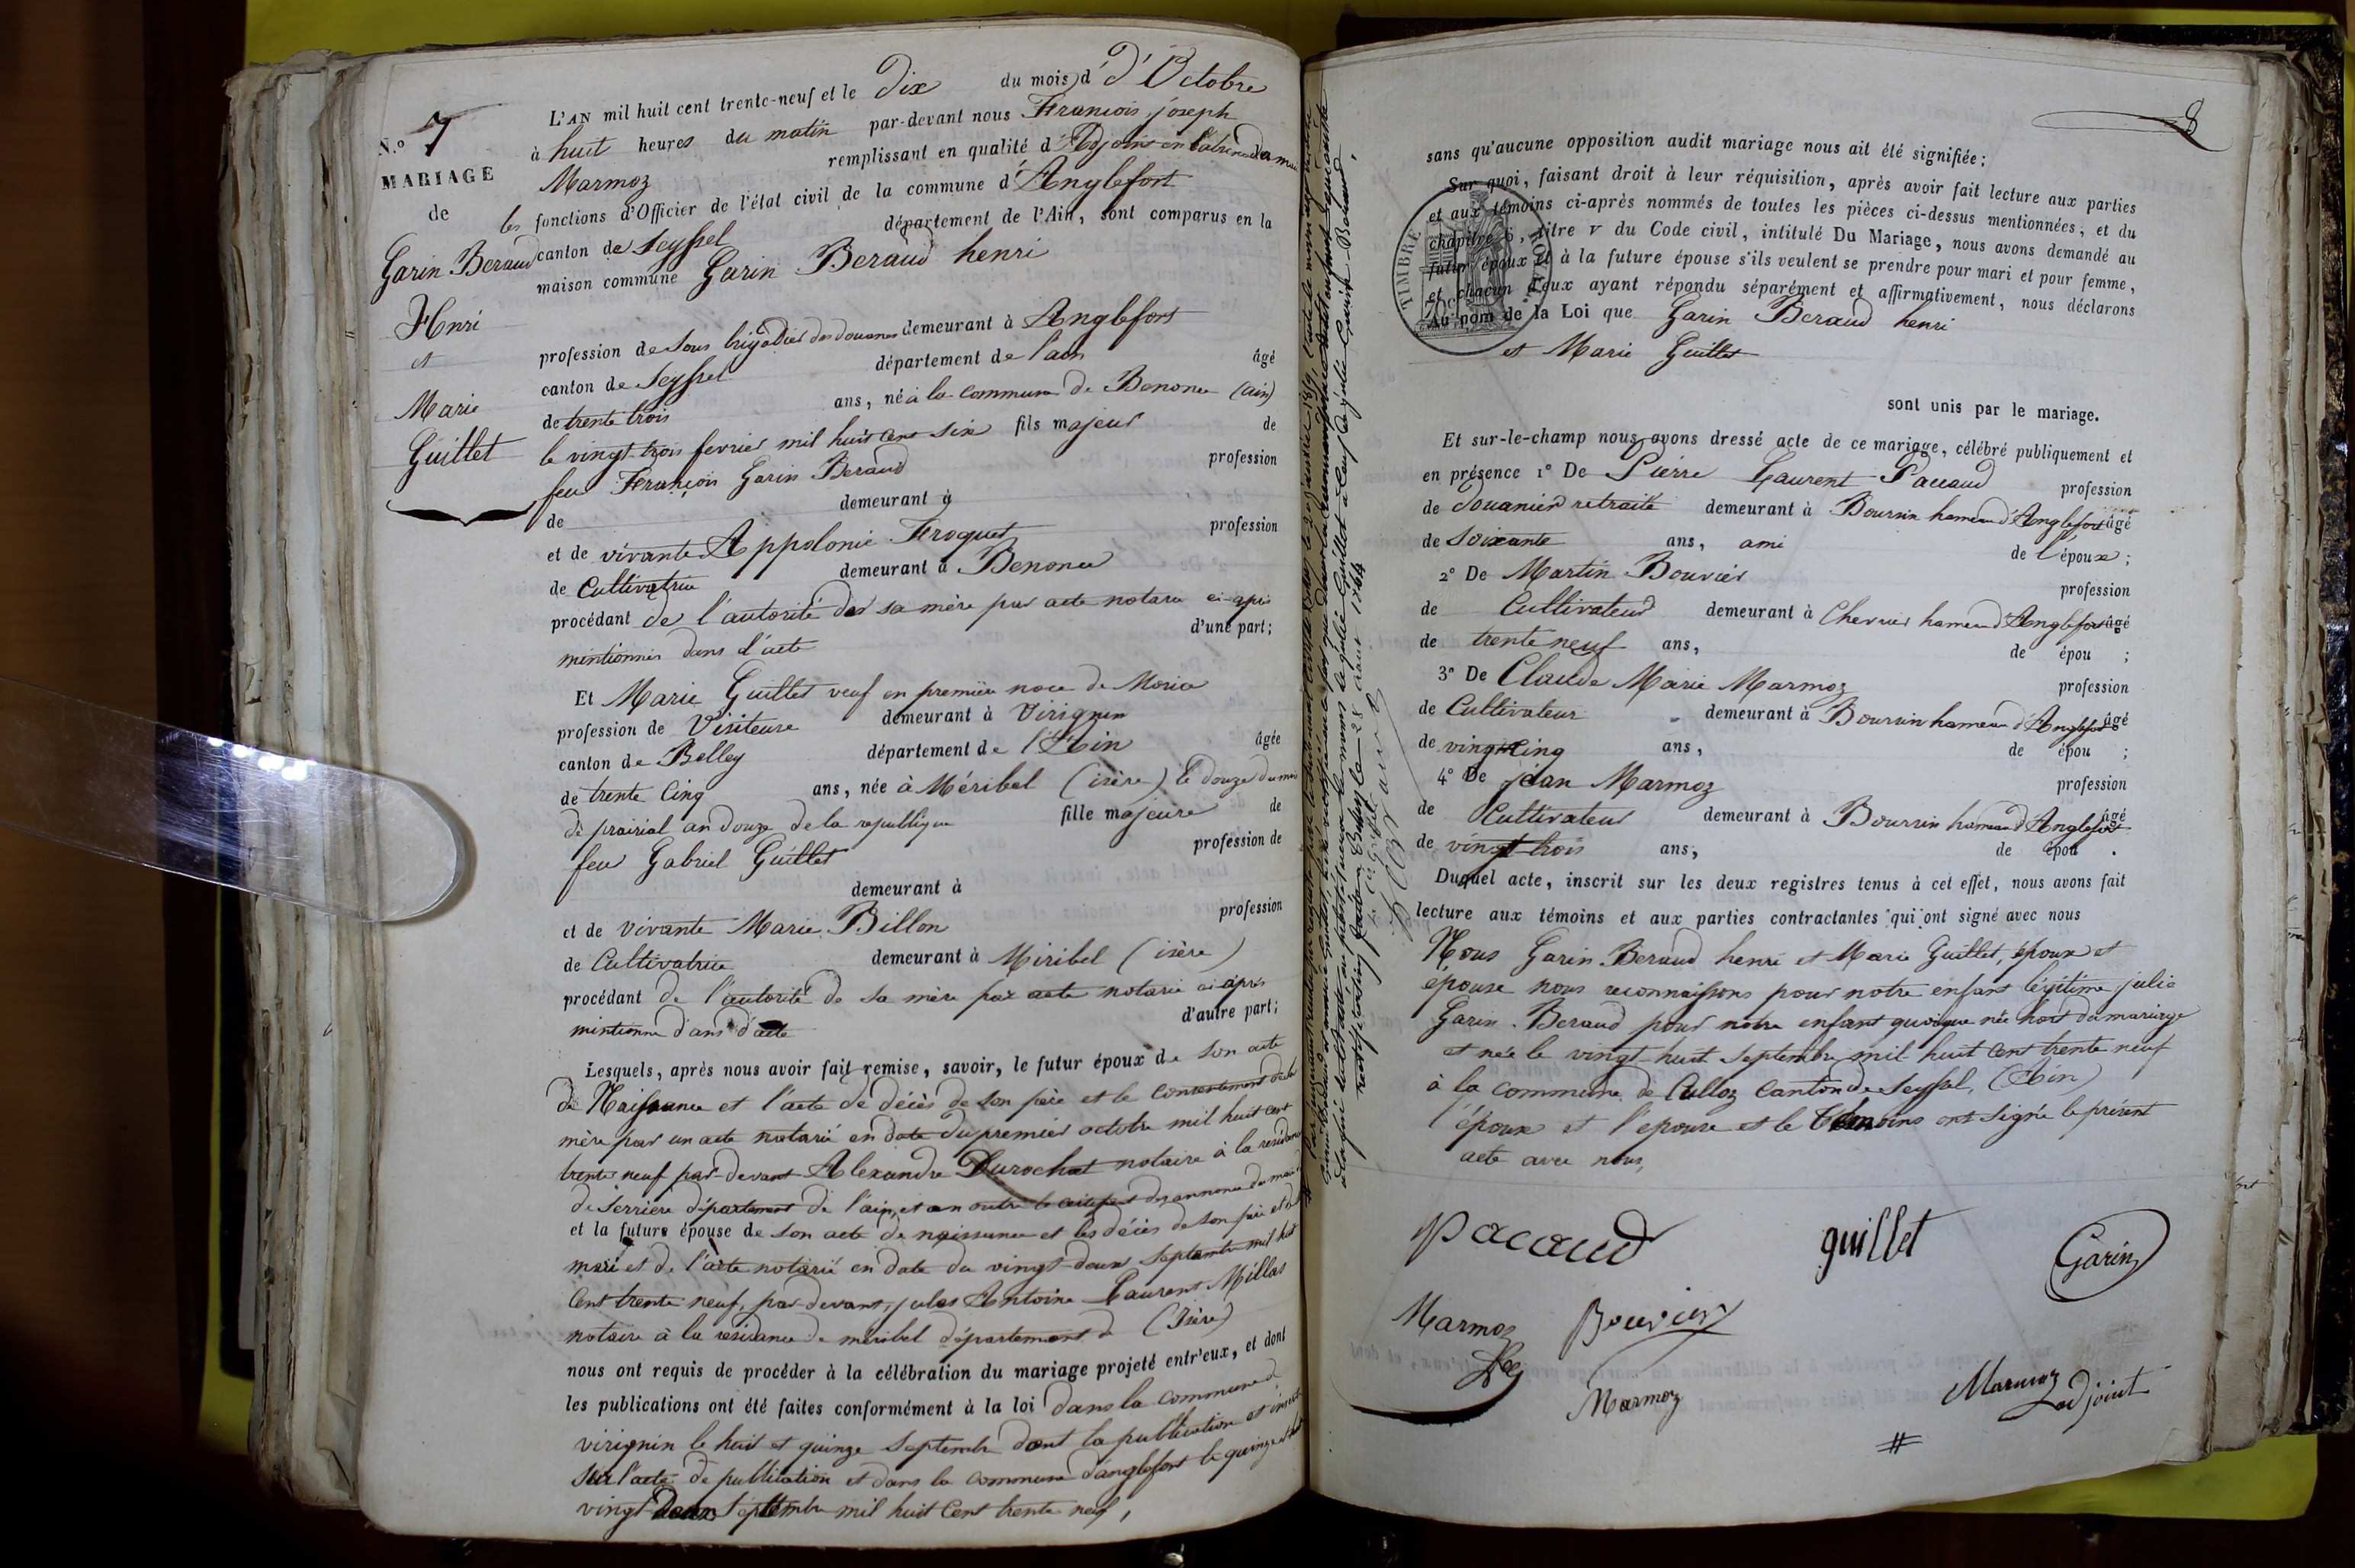 N.o 7
MARIAGE
de
Garin Beraud
Henri
et
Marie
Guillet
L'AN mil huit cent trente-neuf et le Dix du mois d' d'Octobre
à huit heures du matin par-devant nous François joseph
Marmoz remplissant en qualité d'Adjoint en l'absence du maire
les fonctions d'Officier de l'état civil de la commune d'Anglefort
canton de Seyssel département de l'Ain, sont comparus en la
maison commune Garin Beraud henri
profession de Sous brigadier des douanes demeurant à Anglefort
canton de Seyssel département de l'ain âgé
de trente trois ans, né à la commune de Benonce (ain)
le vingt-trois fevrier mil huit cent six fils majeur de
feu François Garin Beraud profession
de demeurant à
et de vivante Appolonie Froquet profession
de Cultivatrice demeurant à Benonce
procédant de l'autorité de sa mère par acte notarié ci-après
mentionnés dans l'acte d'une part;
Et Marie Guillet veuf en première noce de Moria
profession de Visiteuse demeurant à Virignin
canton de Belley département de l'Ain âgée
de trente Cinq ans, née à Méribel (isère) le douze du mois
de prairial an douze de la republique fille majeure de
feu Gabriel Guillet profession de
demeurant à
et de vivante Marie Billon profession
de Cultivatrice demeurant à Miribel (isère)
procédant de l'autorité de sa mère par acte notarié ci-après
mintionne dans d'acte d'autre part;
Lesquels, après nous avoir fait remise, savoir, le futur époux de son acte
de Naissance et l'acte de décès de son père et le Consentement de la
mère par un acte notarié en date du premier octobre mil huit cent
trente neuf par-devant Alexandre Durochat notaire à la residence
de Serriere département de l'ain, et en outre le certificat des annonce du mari
et la future épouse de son acte de naissance et les décès de son père et
mari et de l'acte notarié en date du vingt-deux Septembre mil huit
Cent trente neuf, par-devant, jules Antoine Laurent Millas
notaire à la residance de méribel département de (Isère)
nous ont requis de procéder à la célébration du mariage projeté entr'eux, et dont
les publications ont été faites conformément à la loi dans la commune de
virignin le huit et quinze Septembre dont la publication et
sur l'acte de publication et dans la commune d'anglefort le quinze et
vingt Deux Septembre mil huit Cent trente neuf,
8
sans qu'aucune opposition audit mariage nous ait été signifiée;
Sur quoi, faisant droit à leur réquisition, après avoir fait lecture aux parties
et aux témoins ci-après nommés de toutes les pièces ci-dessus mentionnées, et du
chapitre 6, titre V du Code civil, intitulé Du Mariage, nous avons demandé au
futur époux et à la future épouse s'ils veulent se prendre pour mari et pour femme,
et chacun d'eux ayant répondu séparément et affirmativement, nous déclarons
Au nom de la Loi que Garin Beraud henri
et Marie Guillet
sont unis par le mariage.
Et sur-le-champ nous avons dressé acte de ce mariage, célébré publiquement et
en présence 1° De Pierre Laurent Pacaud profession
de douanier retraité demeurant à Boursin hameau d'Anglefort âgé
de soixante ans, ami de l'époux;
2° De Martin Bouvier profession
de Cultivateur demeurant à Chevrier hameau d'Anglefort âgé
de trente neuf ans, de épou ;
3° De Claude Marie Marmoz profession
de Cultivateur demeurant à Boursin hameau d'Anglefort âgé
de vingt Cinq ans, de épou ;
4° De jean Marmoz profession
de Cultivateur demeurant à Boursin hameau d'Anglefort âgé
de vingt trois ans, de épou .
Duquel acte, inscrit sur les deux registres tenus à cet effet, nous avons fait
lecture aux témoins et aux parties contractantes qui ont signé avec nous
Nous Garin Beraud henri et Marie Guillet, époux et
épouse nous reconnaissons pour notre enfant légitime julie
Garin Beraud pour notre enfant quoique née hors du mariage
et née le vingt-huit Septembre mil huit Cent trente neuf
à la commune de Culloz Canton de Seyssel, (Ain)
l'époux et l'epouse et le témoins ont signé le présent
acte avec nous,
Pacaud guillet Garin
Marmoz Bouvier
Marmoz Marmoz adjoint
TIMBRE ROYAL